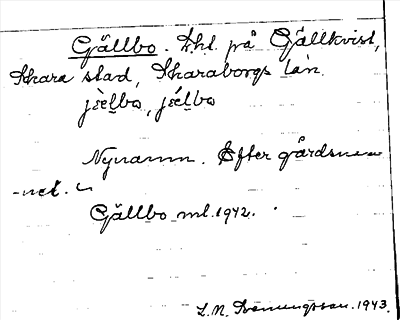 Gällbo. Lht. på Gällkvist,
Skara stad, Skaraborgs län.
jèḷbo, jéḷbo
Nynamn. Efter gårdsnam-
-net.
Gällbo ml. 1942.
L. N. Svenungsson. 1943.